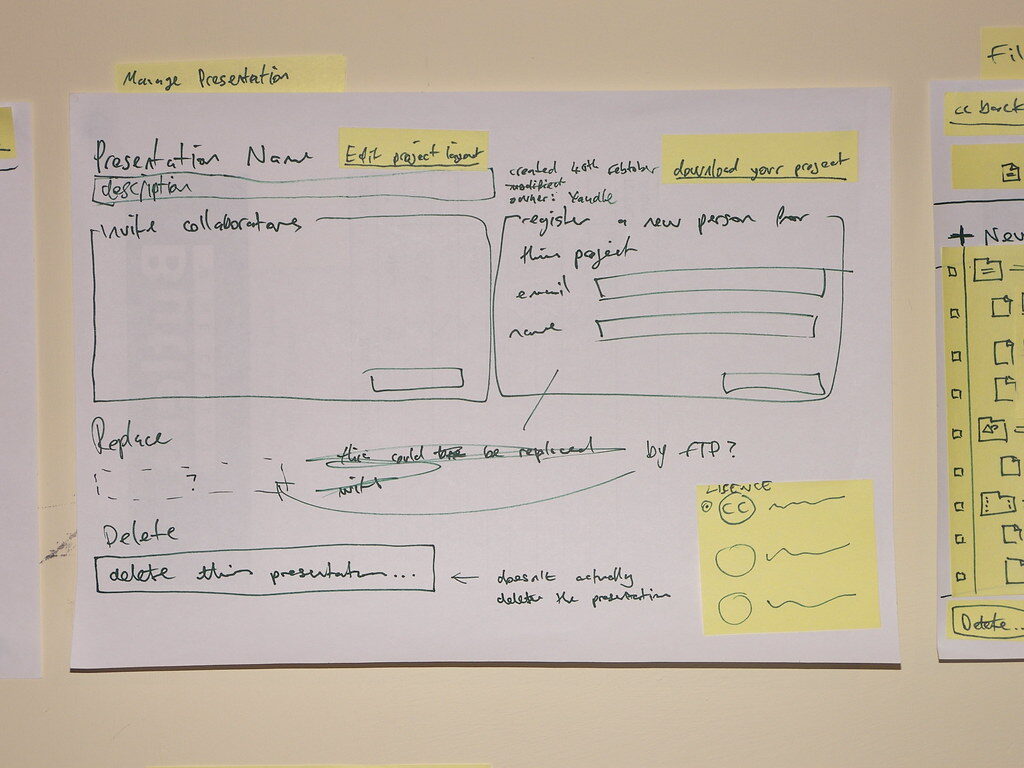 Manage Presentation
Fil
Presentation Name
Edit project layout
created 40th Febtober
modified
owner: Yaudle
download your project
description
Invite collaborators
register a new person for
this project
email
name
Replace
?
this could be replaced
with
by FTP?
Delete
delete this presentation...
doesn't actually
delete the presentation
LISENCE
CC
<< back
+ New
Delete...